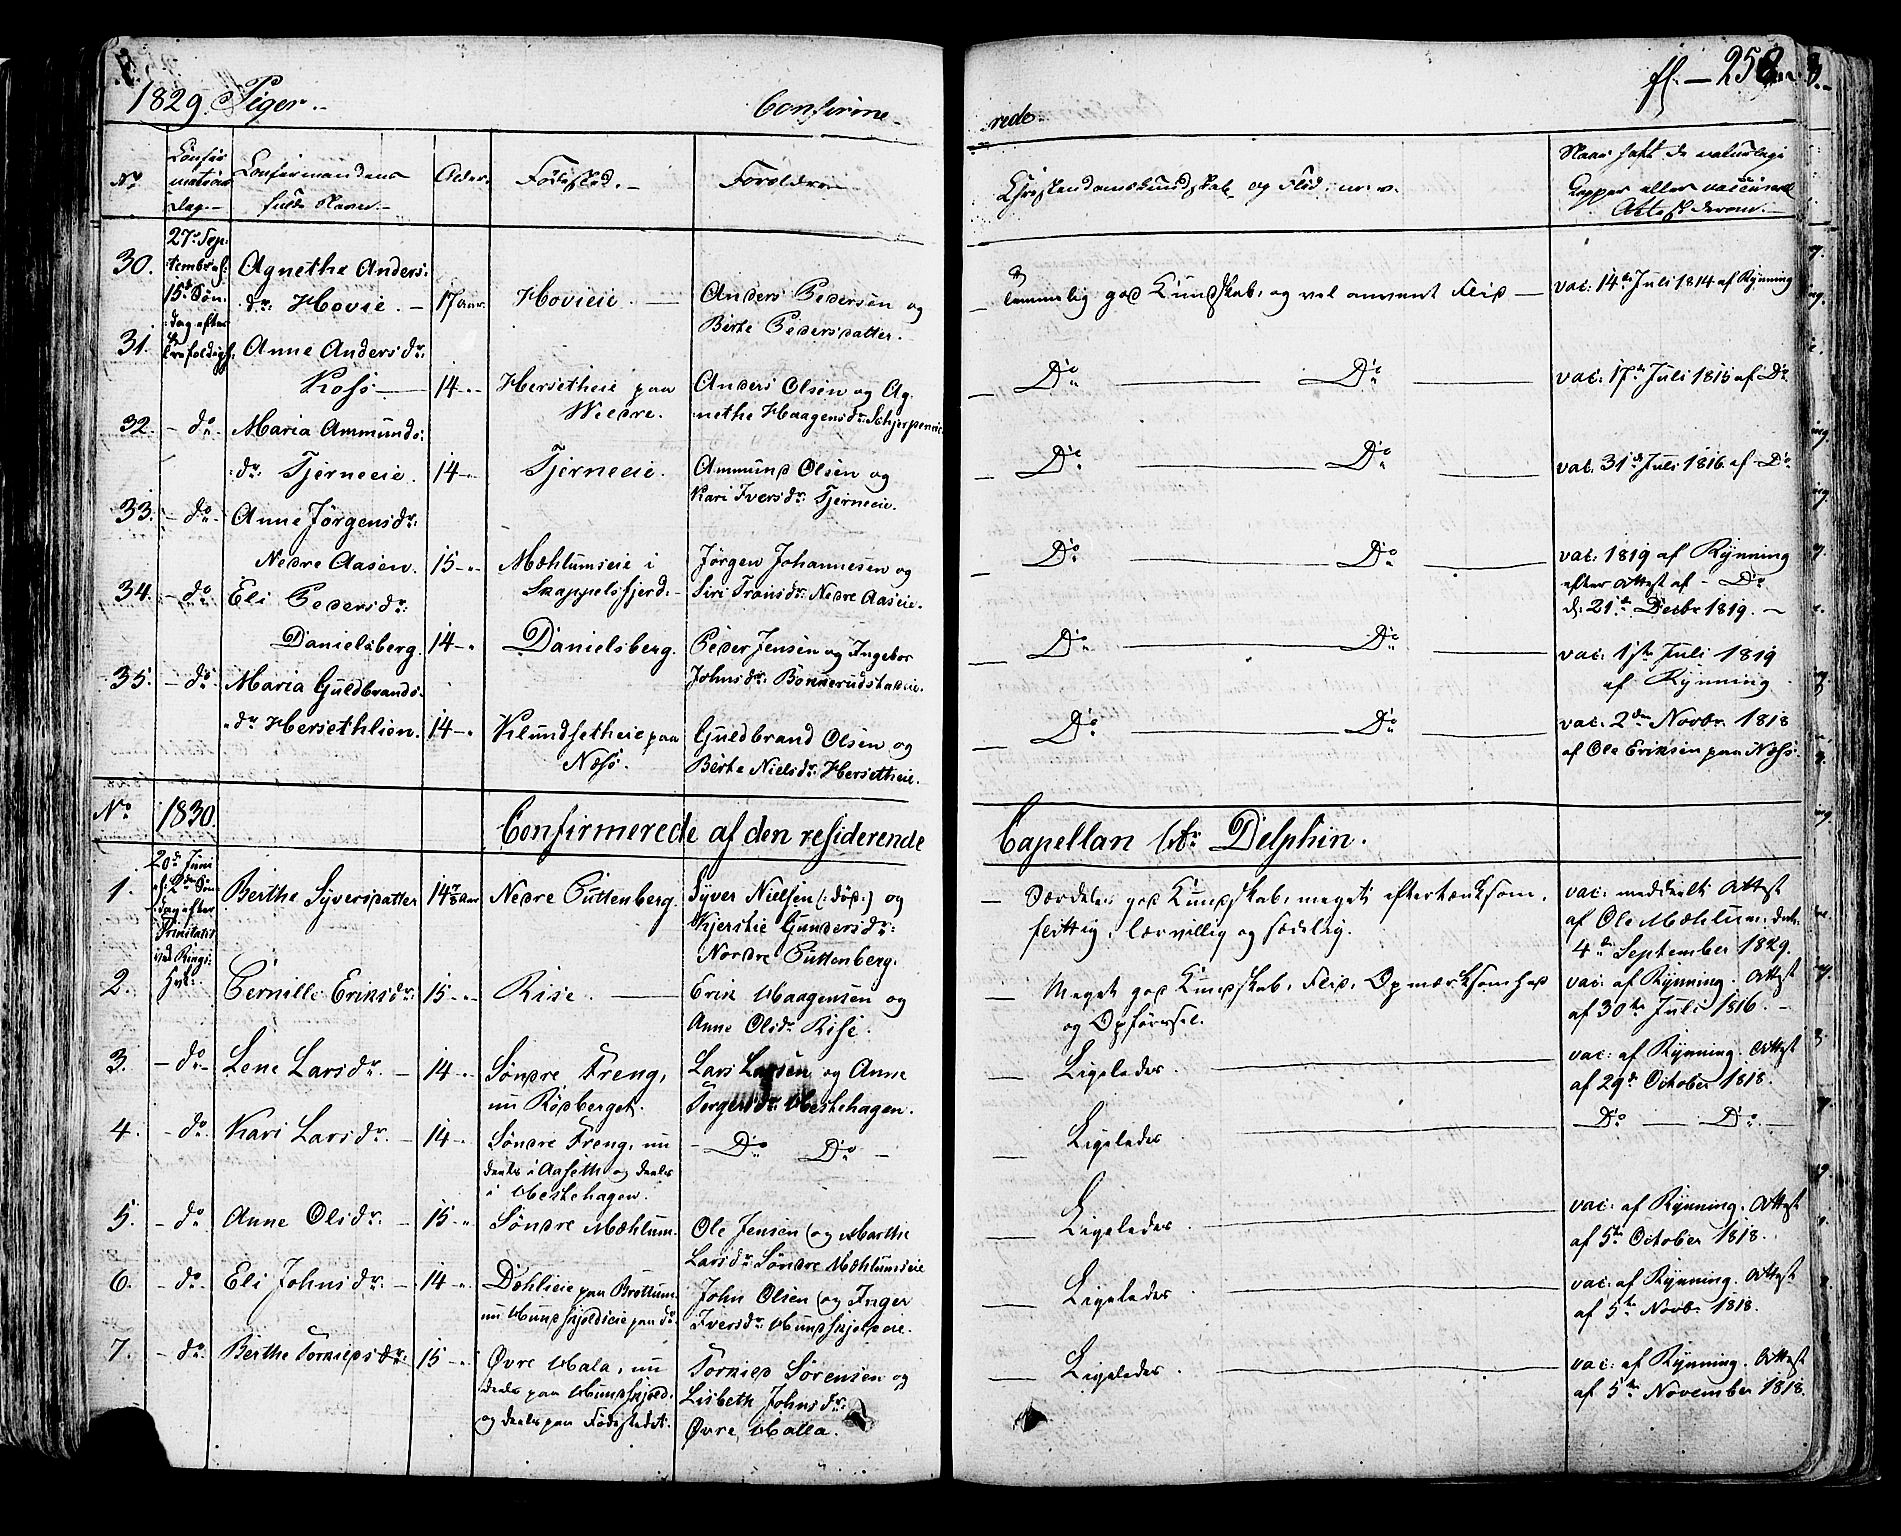 1829. Piger. Confirme-
rede. 258
No. Confirmations Dag. Confirmandens fulde Navn. Alder. Fødested. Forældre
Christendomskundskab og Flid, m: v. Naar havt de naturlige Kopper eller vaccinerede Attest derom.
30. 27de Septembr of: 15de Søndag efter Trefoldigh. Agnethe Anders:
dr: Hovie. 17 aar. Hovieie. Anders Pedersen og
Berte Pedersdatter.
temmelig god Kundskab, og vel anvendt Flid vac: 14de Juli 1814 af Rynning
31. Anne Andersdr:
Kosø 14 Hersetheie paa Anders Olsen og Ag-
Nedre. nethe Haagensdr: Schjerpeneie.
Do Do vac: 17de Juli 1815 af Do
32. do Maria Ammunds:
dr: Tjerneeie. 14 Tjerneeie. Ammund Olsen og
Kari Iversdr: Tjerneeie.
Do Do vac: 31te Juli 1816 af Do
33. do Anne Jørgensdr:
Nedre Aasen. 15 Mæhlumseie i Jørgen Johannesen og
Skappelsfjerd. Siri Tronsdr: Nedre Aaseie.
Do Do vac: 1819 af Rynning
efter Attest af Do
d: 21de Decbr 1819.
34. do Eli Pedersdr:
Danielsberg. 14 Danielsberg. Peder Jensen og Ingebor
Johnsdr: Bønnerudstadeie.
Do Do vac: 1ste Juli 1819
af Rynning
35. do Maria Guldbrands-
dr Hersethlien. 14 Klundsetheie paa Guldbrand Olsen og
Næss. Berte Nielsdr: Hersetheie.
Do Do vac: 2den Novbr 1818
af Ole Eriksen paa Næss.
No 1830. Confirmerede af den residerende Capellan Hr Delphin.
1. 20de Juni of: 2den Søndag efter Trinitatis ved Rings: Hvk: Berthe Syversdatter 14 aar Nedre Guttenberg. Syver Nielsen (: død:) og
Kjerstie Gundersdr:
Nordre Guttenberg.
Særdeles god Kundskab, meget eftertænksom,
flittig, lærvillig og sædelig.
vac: meddeelt Attest
af Ole Mæhlum, dat:
4de September 1829.
2. Pernille Eriksdr: 15 Rise. Erik Haagensen og
Anne Olsdr. Rise.
Meget god Kundskab, Flid, Opmærksomhed
og Opførsel.
vac: af Rynning. Attest
af 30te Juli 1816.
3. do Lene Larsdr. 14 Søndre Freng, Lars Larsen og Anne
nu Rødberget. Torgersdr: Hestehagen.
Ligeledes. vac: af Rynning. Attest
af 29de October 1818.
4. do Kari Larsdr. 14 Søndre Freng, nu Do Do
deels i Aaseth og deels
i Hestehagen.
Ligeledes Do Do
5. do Anne Olsdr. 15 Søndre Mæhlum. Ole Jensen og Marthe
Larsdr: Søndre Mæhlumseie
Ligeledes. vac: af Rynning. Attest
af 5te October 1818.
6. do Eli Johnsdr. 14 Dehlieie paa Brøttum John Olsen og Inger
nu Hundskjoldieie paa do. Iversdr: Hundskjoldeie.
Ligeledes vac: af Rynning. Attest
af 5te Novbr. 1818.
7. do Berthe Torkieldsdr: 15 Øvre Hala, nu Torkield Sørensen og
deels paa Hundskjold. Lisbeth Johnsdr:
og deels paa Fødestedet. Øvre Halla.
Ligeledes. vac: af Rynning. Attest
af 5te November 1818.